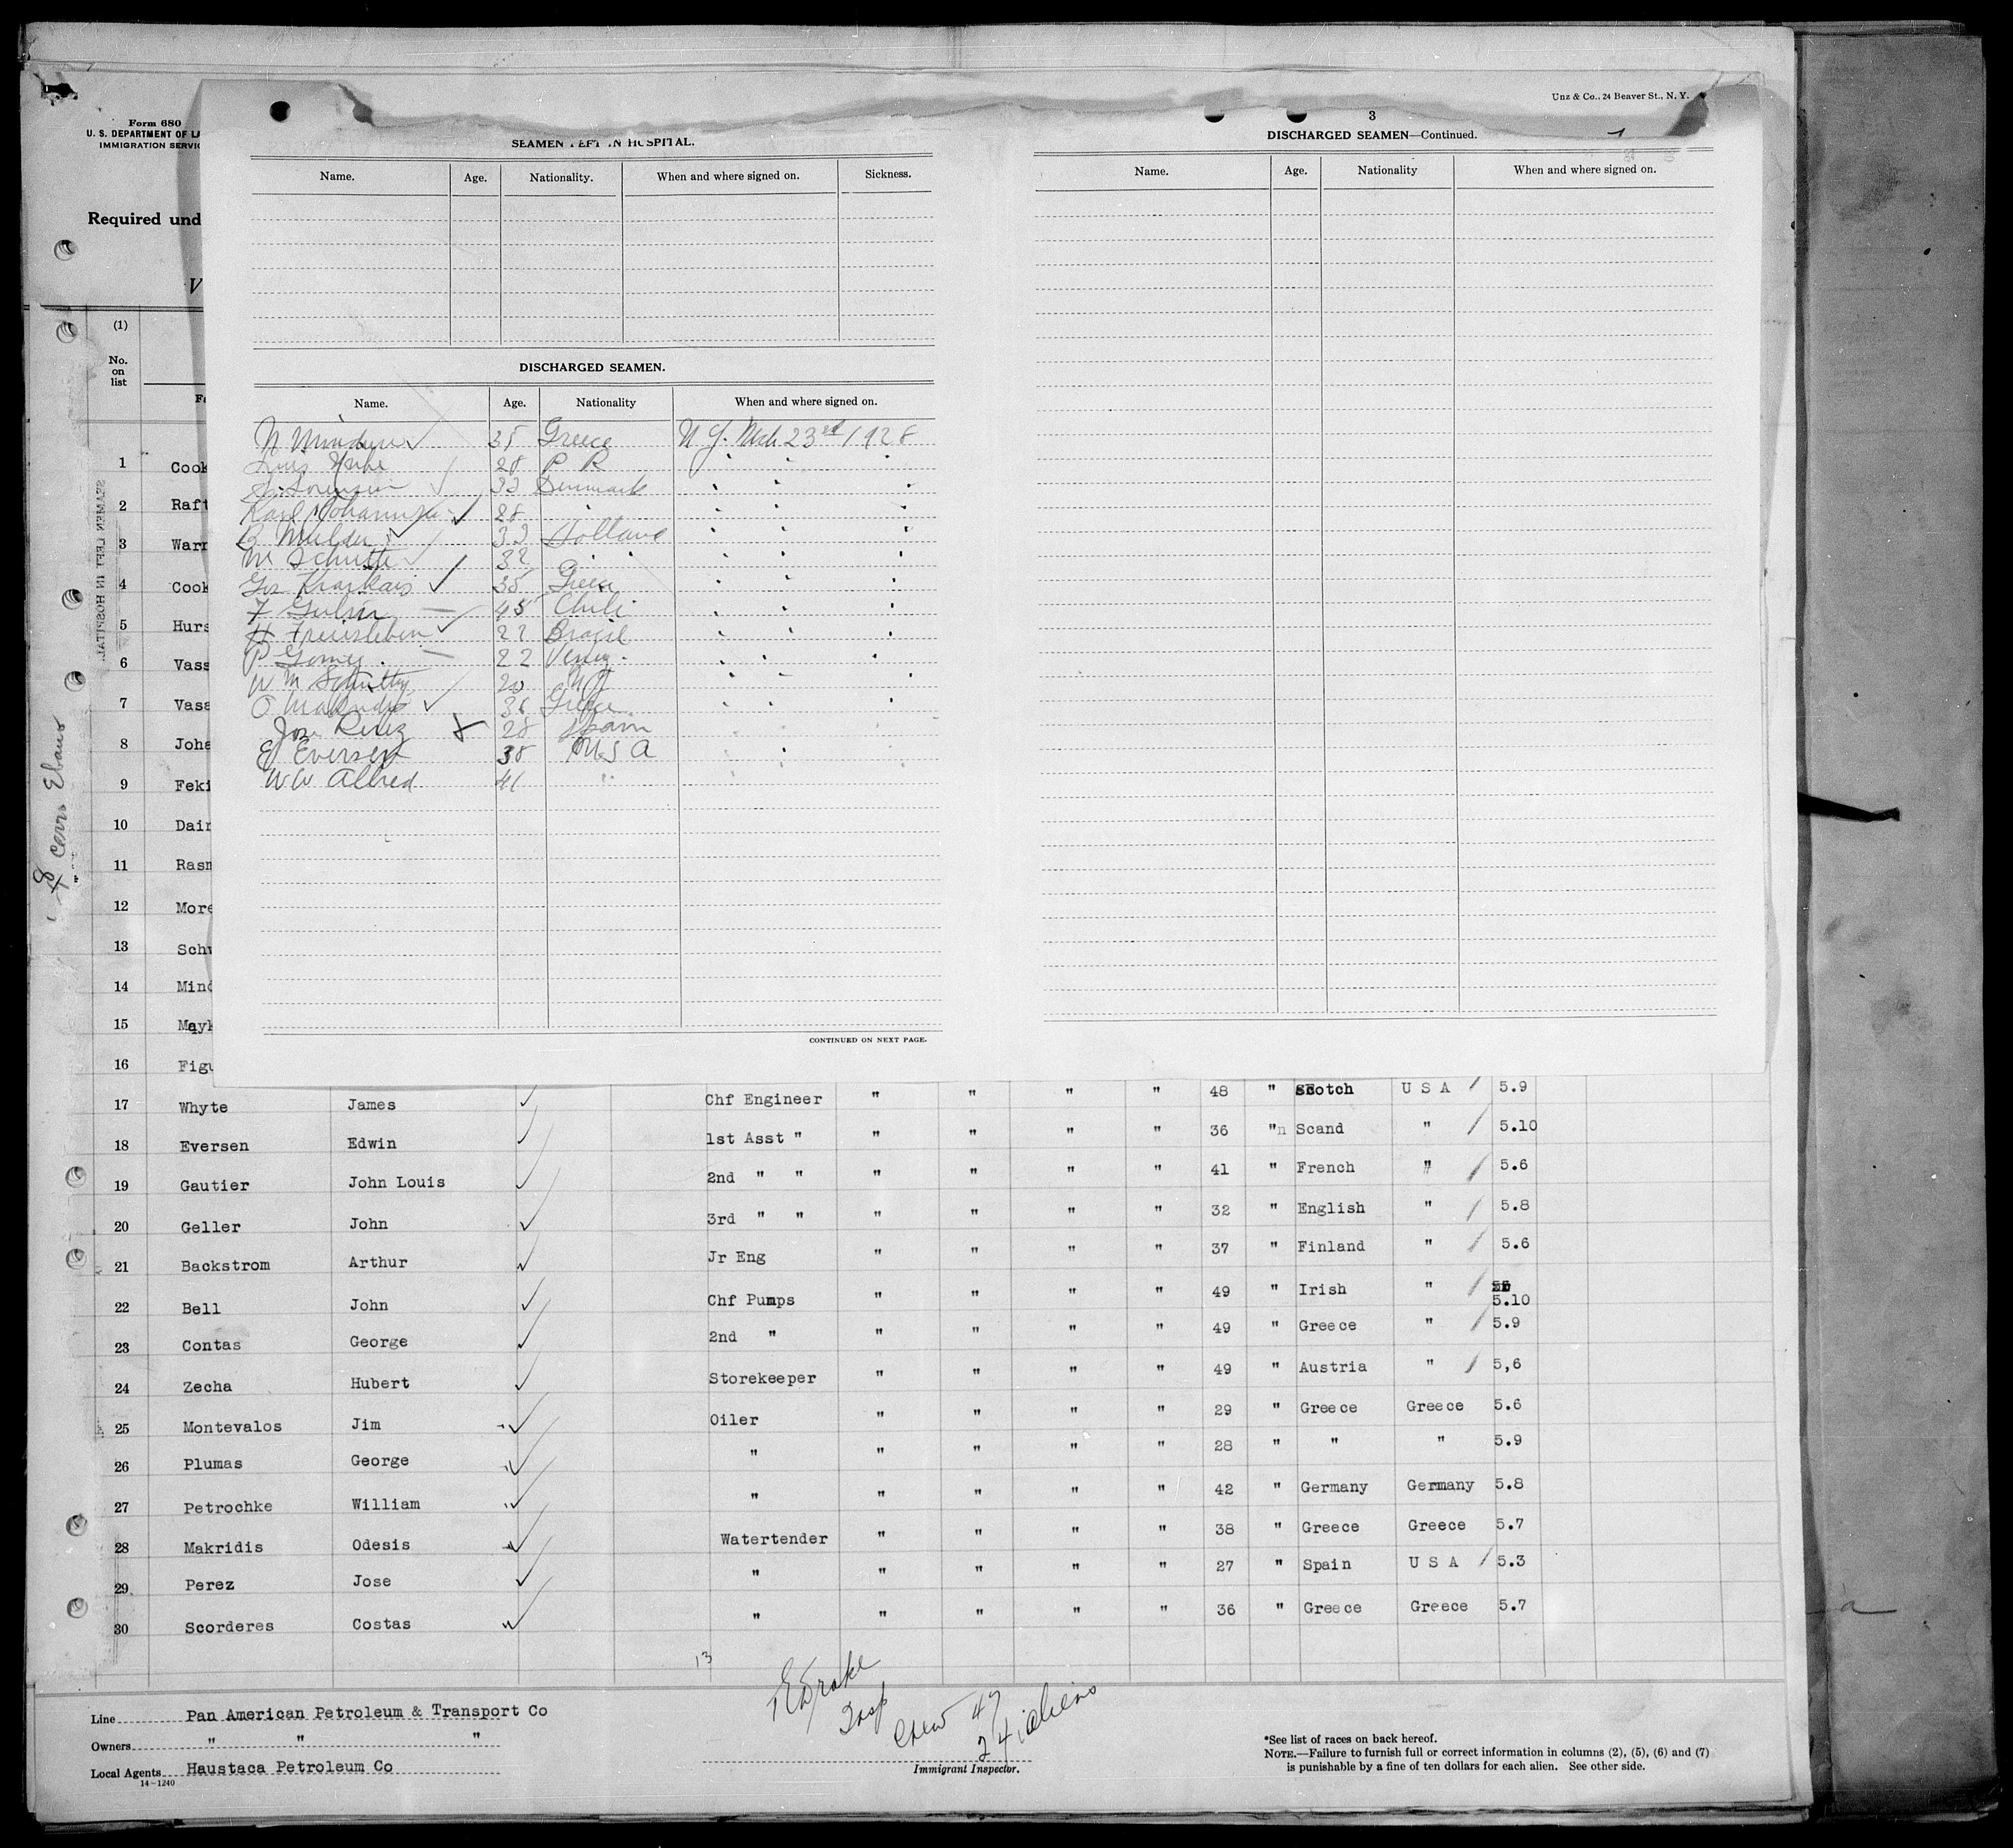 Unz & Co., 24 Beaver St., N. Y.
Form 680
U. S. DEPARTMENT OF LA
IMMIGRATION SERVIC
Required und
V
(1)
No. on list
SEAMEN LEFT IN HOSPITAL.
Name. Age. Nationality. When and where signed on. Sickness.
DISCHARGED SEAMEN.
Name. Age. Nationality When and where signed on.
35 Greece N Y. Mch 23rd 1928
28 P R " " "
S. Sorensen 33 Denmark " " "
Karl Johannsen 28 " " " "
Mulder 33 Holland " " "
M Schutte 32 " " " " "
Gus 35 Greece " " "
F 45 Chili " " "
H Freisleben 22 Brazil " " "
P Gomez. 22 Venez. " " "
W M 20 N Y " " "
O Makridis 36 Greece " " "
Jose Perez 28 Spain " " "
E Eversen 38 U S A " " "
W W Allred 41 " " " "
CONTINUED ON NEXT PAGE.
3
DISCHARGED SEAMEN—Continued.
Name. Age. Nationality When and where signed on.
SEAMEN LEFT IN HOSPITAL.
1 Cook
2 Raft
3 Warr
4 Cook
5 Hurs
6 Vass
7 Vass
8 Joha
9 Feki
10 Dair
11 Rasm
12 More
13 Schw
14 Mind
15 Mayk
16 Figu
17 Whyte James Chf Engineer " " " " 48 " Scotch U S A / 5.9
18 Eversen Edwin 1st Asst " " " " " 36 "n Scand " / 5.10
19 Gautier John Louis 2nd " " " " " " 41 " French " / 5.6
20 Geller John 3rd " " " " " " 32 " English " / 5.8
21 Backstrom Arthur Jr Eng " " " " 37 " Finland " / 5.6
22 Bell John Chf Pumps " " " " 49 " Irish " / 5.10
23 Contas George 2nd " " " " " 49 " Greece " / 5.9
24 Zecha Hubert Storekeeper " " " " 49 " Austria " / 5,6
25 Montevalos Jim Oiler " " " " 29 " Greece Greece 5.6
26 Plumas George " " " " " 28 " " " 5.9
27 Petrochke William " " " " " 42 " Germany Germany 5.8
28 Makridis Odesis Watertender " " " " 38 " Greece Greece 5.7
29 Perez Jose " " " " " 27 " Spain U S A / 5.3
30 Scorderes Costas " " " " " 36 " Greece Greece 5.7
13
Drake
Insp
Crew 47
24 aliens
Line Pan American Petroleum & Transport Co
Owners " " "
Local Agents Haustaca Petroleum Co
14—1240
Immigrant Inspector.
*See list of races on back hereof.
NOTE.—Failure to furnish full or correct information in columns (2), (5), (6) and (7)
is punishable by a fine of ten dollars for each alien. See other side.